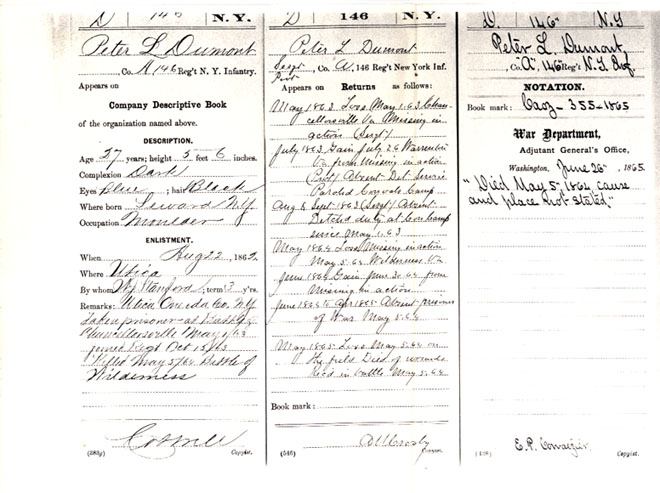 D 146 N.Y.
Peter L Dumont
, Co. A, 146 Reg't N. Y. Infantry.
Appears on
Company Descriptive Book
of the organization named above.
DESCRIPTION.
Age 37 years; height 5 feet 6 inches.
Complexion Dark
Eyes blue; hair Black
Where born Steward N.Y.
Occupation Moulder
ENLISTMENT.
When Aug 22, 1862.
Where Utica
By whom Stanford; term 3 y'rs.
Remarks: Utica Oneida Co. N.Y.
Taken prisoner at Battle of
Chancellorsville May 1/63
joined Regt Oct 15/63
Killed May 5/64 Battle of
Wilderness
(383g) Copyist.
D 146 N.Y.
Peter L Dumont
Sergt Pvt, Co. A, 146 Reg't New York Inf.
Appears on Returns as follows:
May 1863 Loss May 1.63 Chan-
cellorsville Va Missing in
action (Sergt)
July 1863 Gain July 26 Warrenton
Va from Missing in action
(Pvt) Absent Det Service
Paroled Convals Camp
Aug & Sept 1863 (Sergt) Absent
Detched duty at Con Camp
since May 1.63
May 1864 Loss Missing in action
May 5.64 Wilderness Va
June 1864 Gain June 30.64 from
Missing in action
June 1864 to Apr 1865 Absent prisoner
of War May 5.64
May 1865 Loss May 5.64 on
the field Died of wounds
Rec'd in battle May 5.64
Book mark:
(546) Crosby
D. 146 N.Y
Peter L. Dumont,
, Co. A, 146 Reg't N.Y. Inf.
NOTATION.
Book mark: 355-1865
War Department,
Adjutant General's Office,
Washington, June 26, 1865.
"Died May 5" 1864, cause
and place not stated"
E. P.
Copyist.